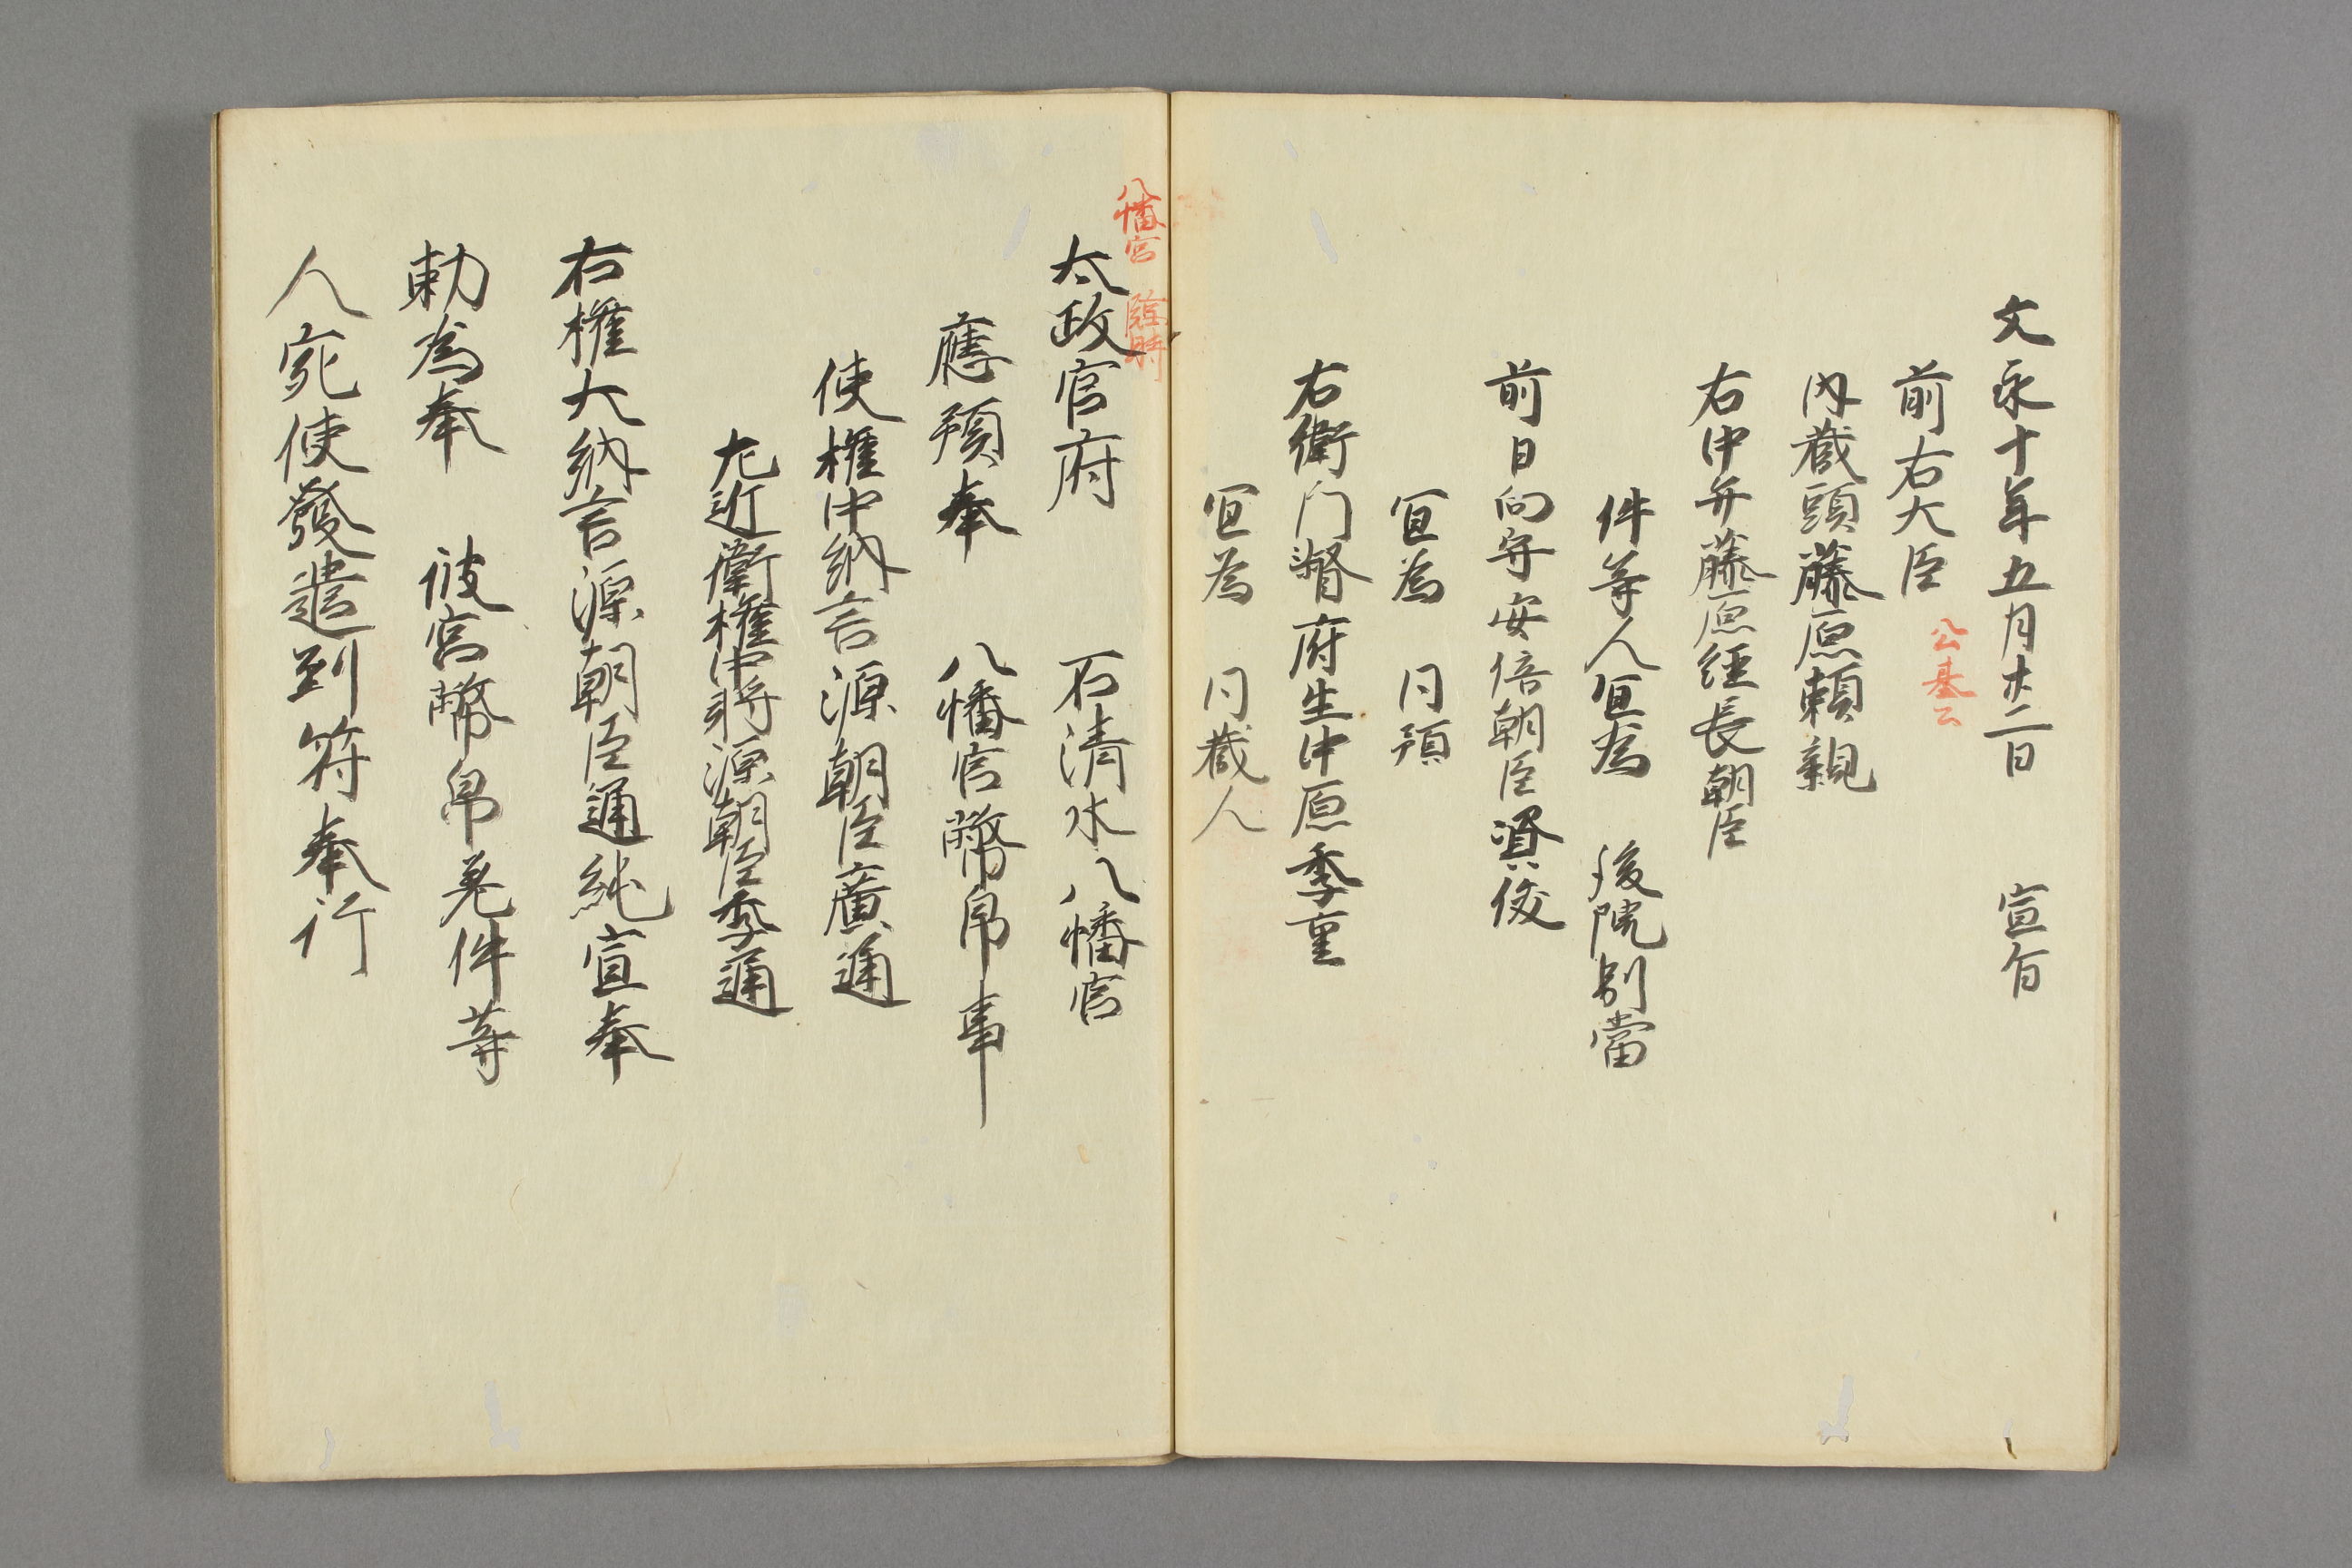 文永十年五月廿二日　宣旨
前右大臣
公基公
内蔵頭藤原頼親
右中弁藤原経長朝臣
件等人宜為　後院別當
前日向守安倍朝臣資俊
宜為　同預
右衛门督府生中原季重
宜為　同蔵人
八幡宮　臨時
太政官府　石清水八幡宮
應預奉　八幡宮幣帛事
使権中納言源朝臣廣通
左近衛権中将源朝臣季通
右権大納言源朝臣通純宣奉
勅為奉　彼宮幣帛差件等
人宛使發遣到符奉行